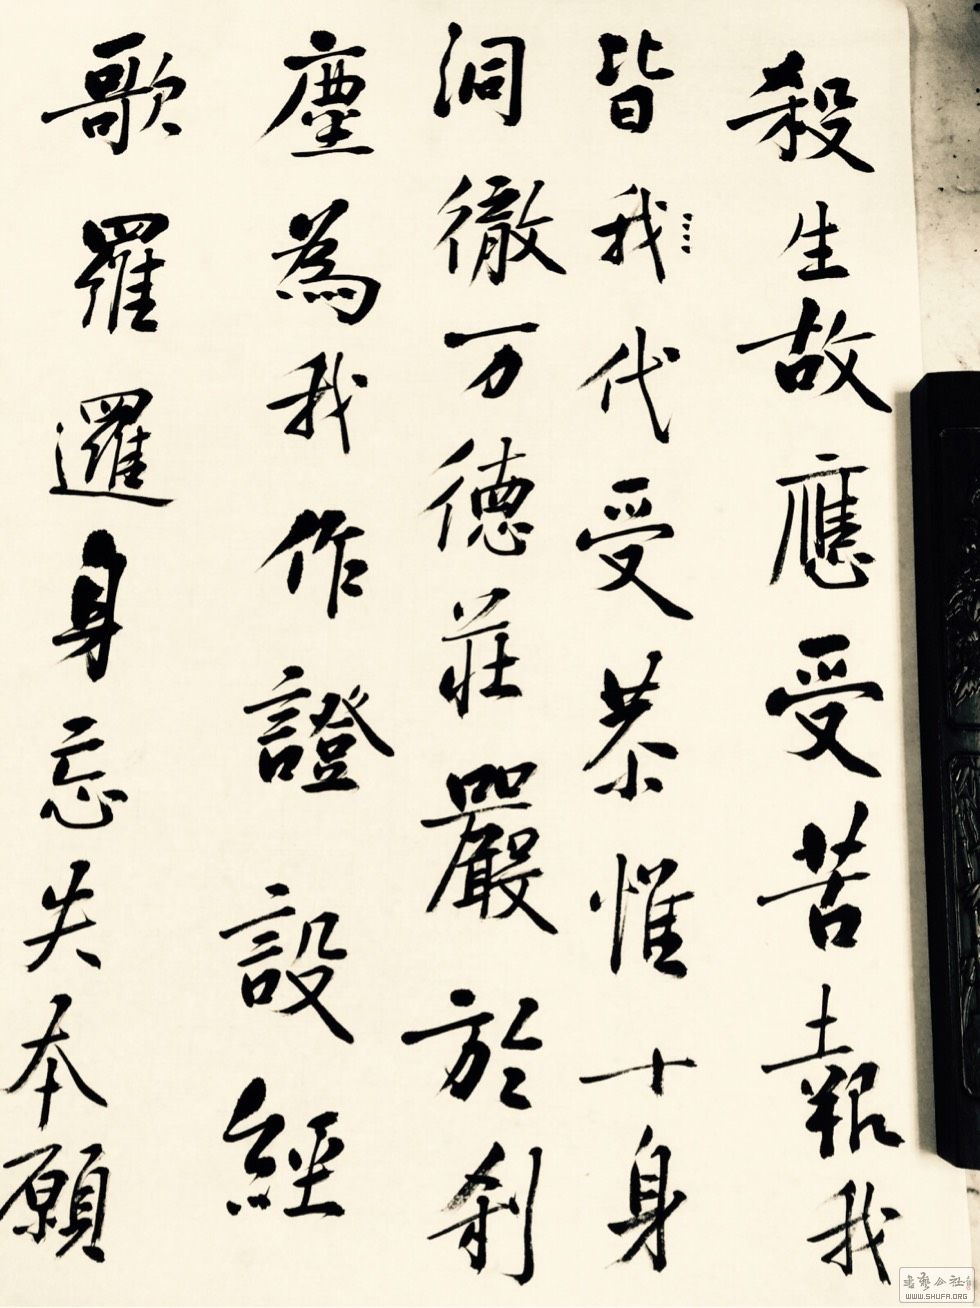 殺生故應受苦報我
皆我代受恭惟十身
洞徹万德莊嚴於刹
塵為我作證設經
歌羅邏身忘失本願
書藝公社
WWW.SHUFA.ORG